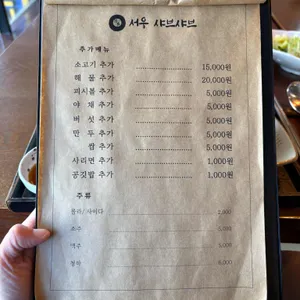 서웅 샤브샤브
추가메뉴
소고기 추가 15,000원
해 물 추가 20,000원
피시볼 추가 5,000원
야 채 추가 5,000원
버 섯 추가 5,000원
만 두 추가 5,000원
쌈 추가 5,000원
사리면 추가 1,000원
공깃밥 추가 1,000원
주류
콜라/사이다 2,000
소주
맥주
청하